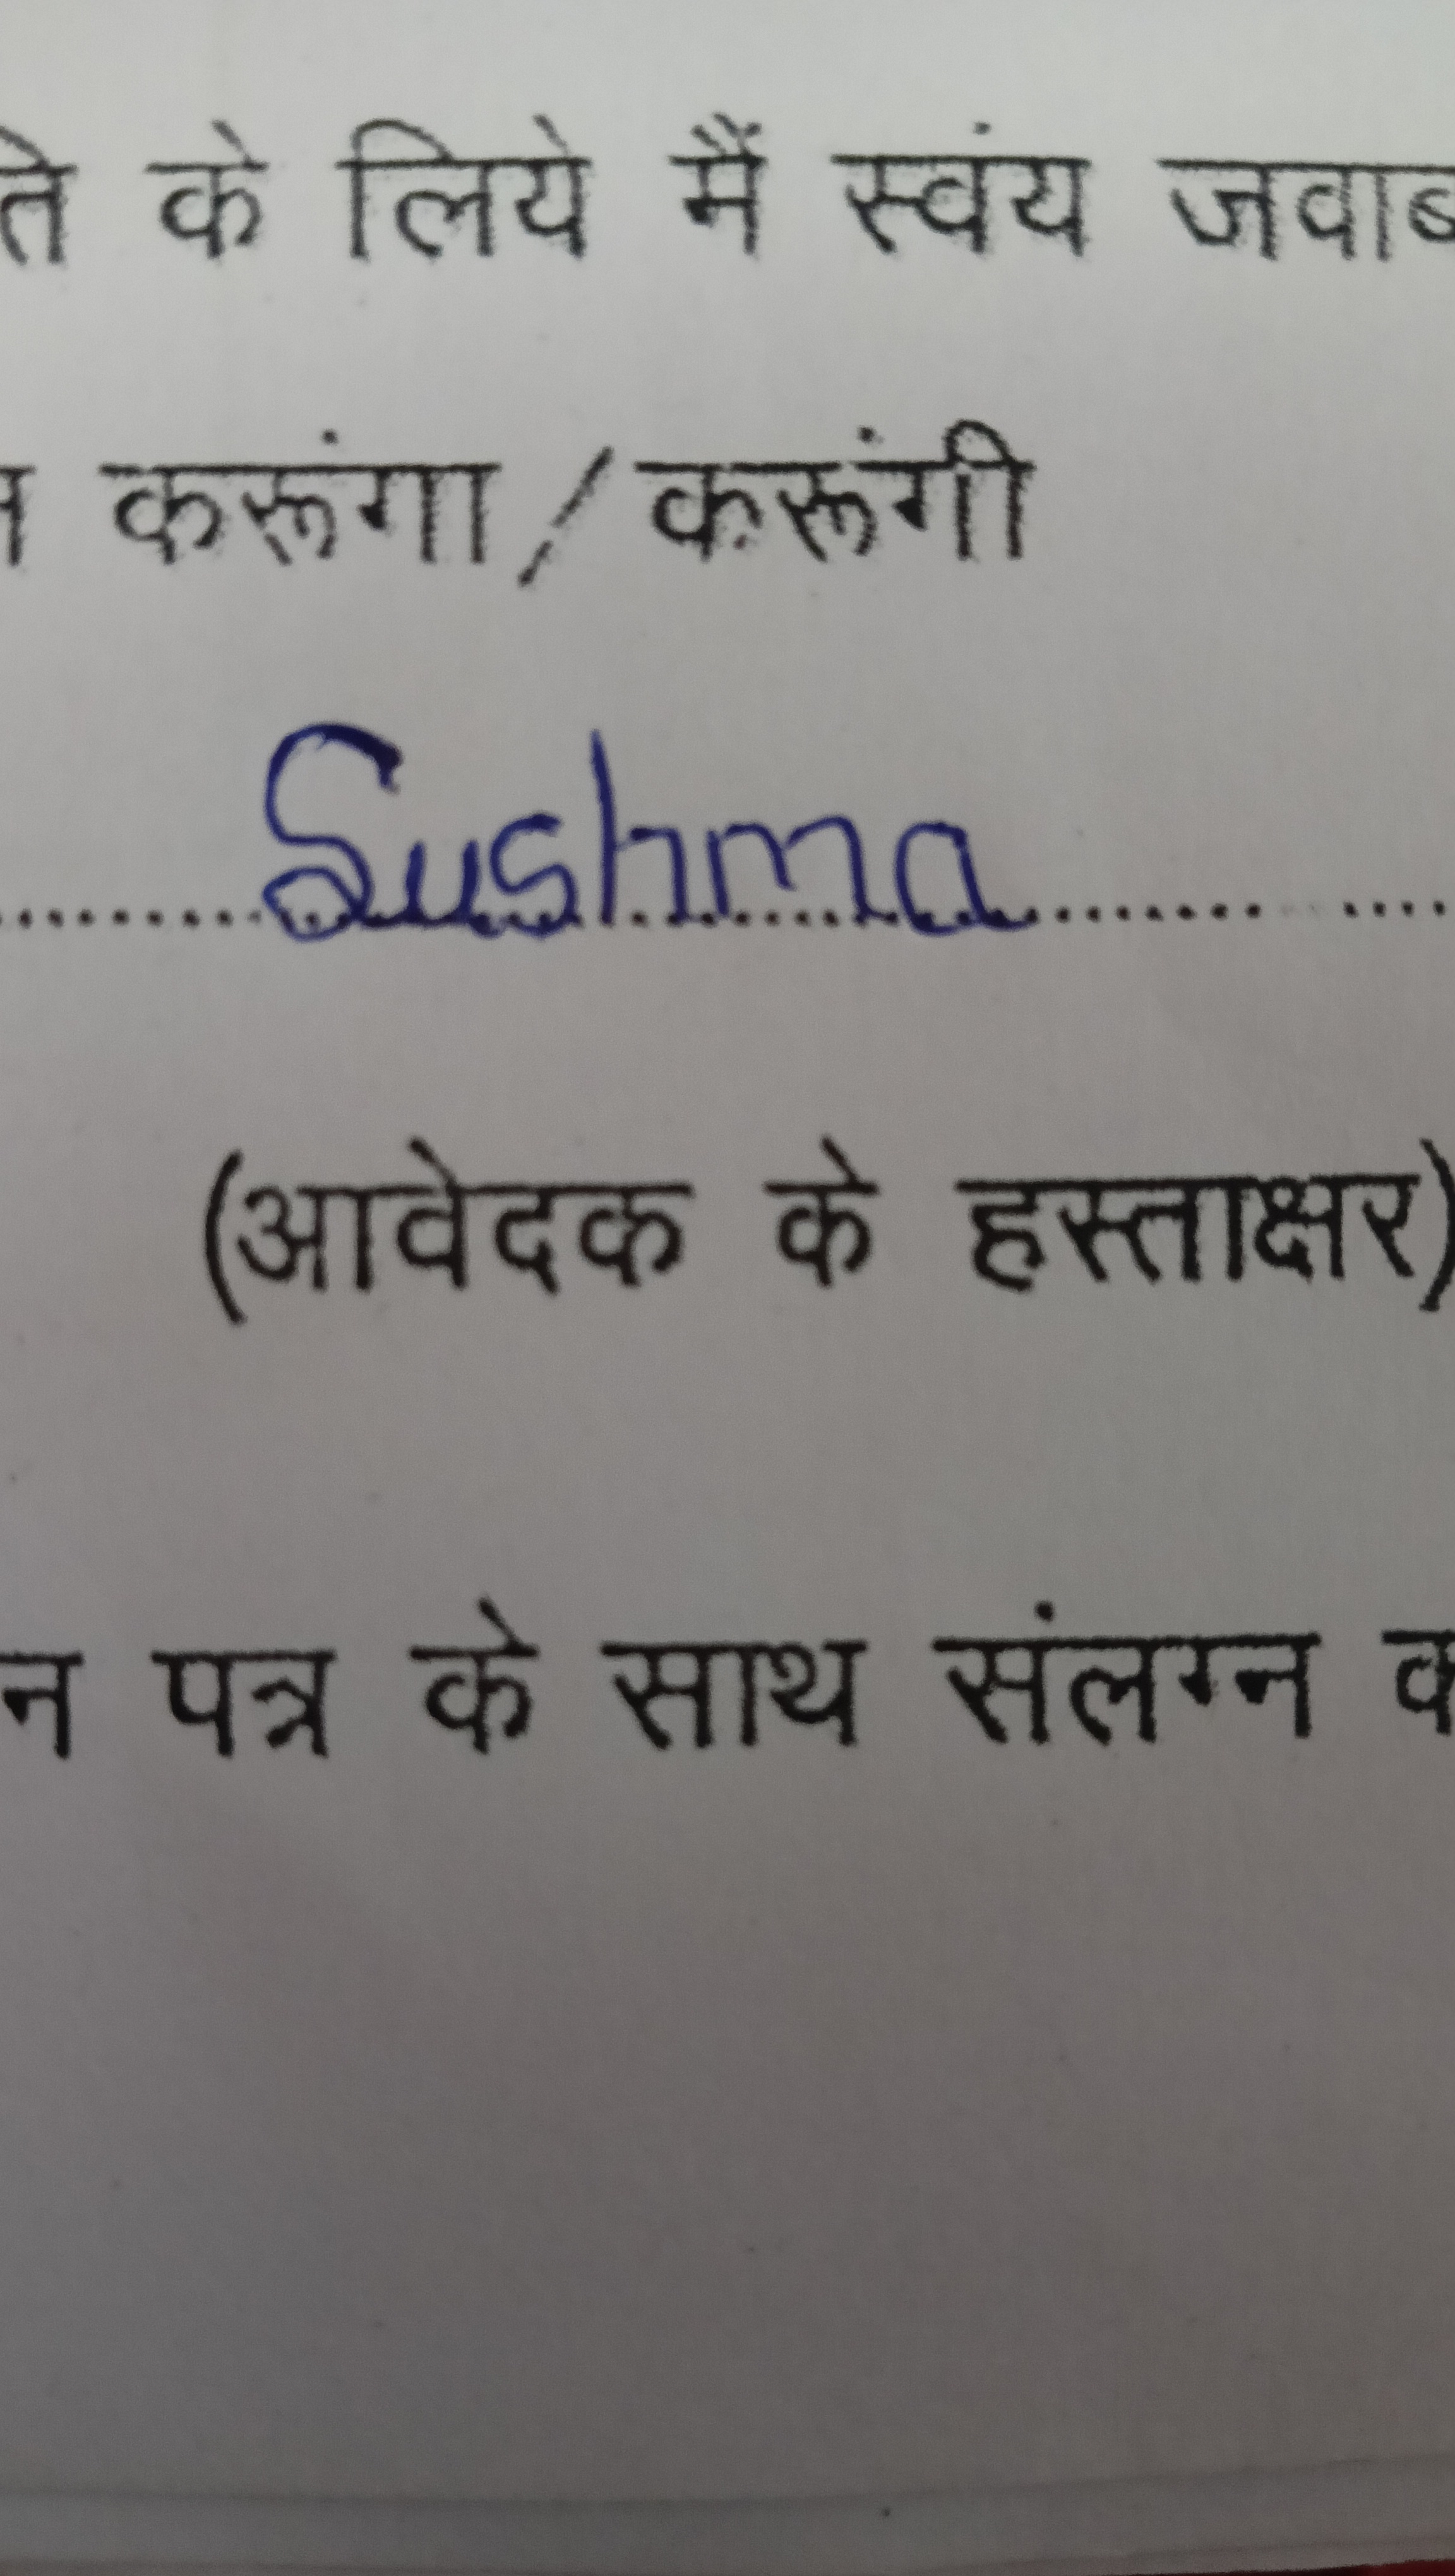 के लिये मैं स्वंय
करूंगा / करूंगी
........Sushma........ ....
(आवेदक के हस्ताक्षर)
पत्र के साथ संलग्न